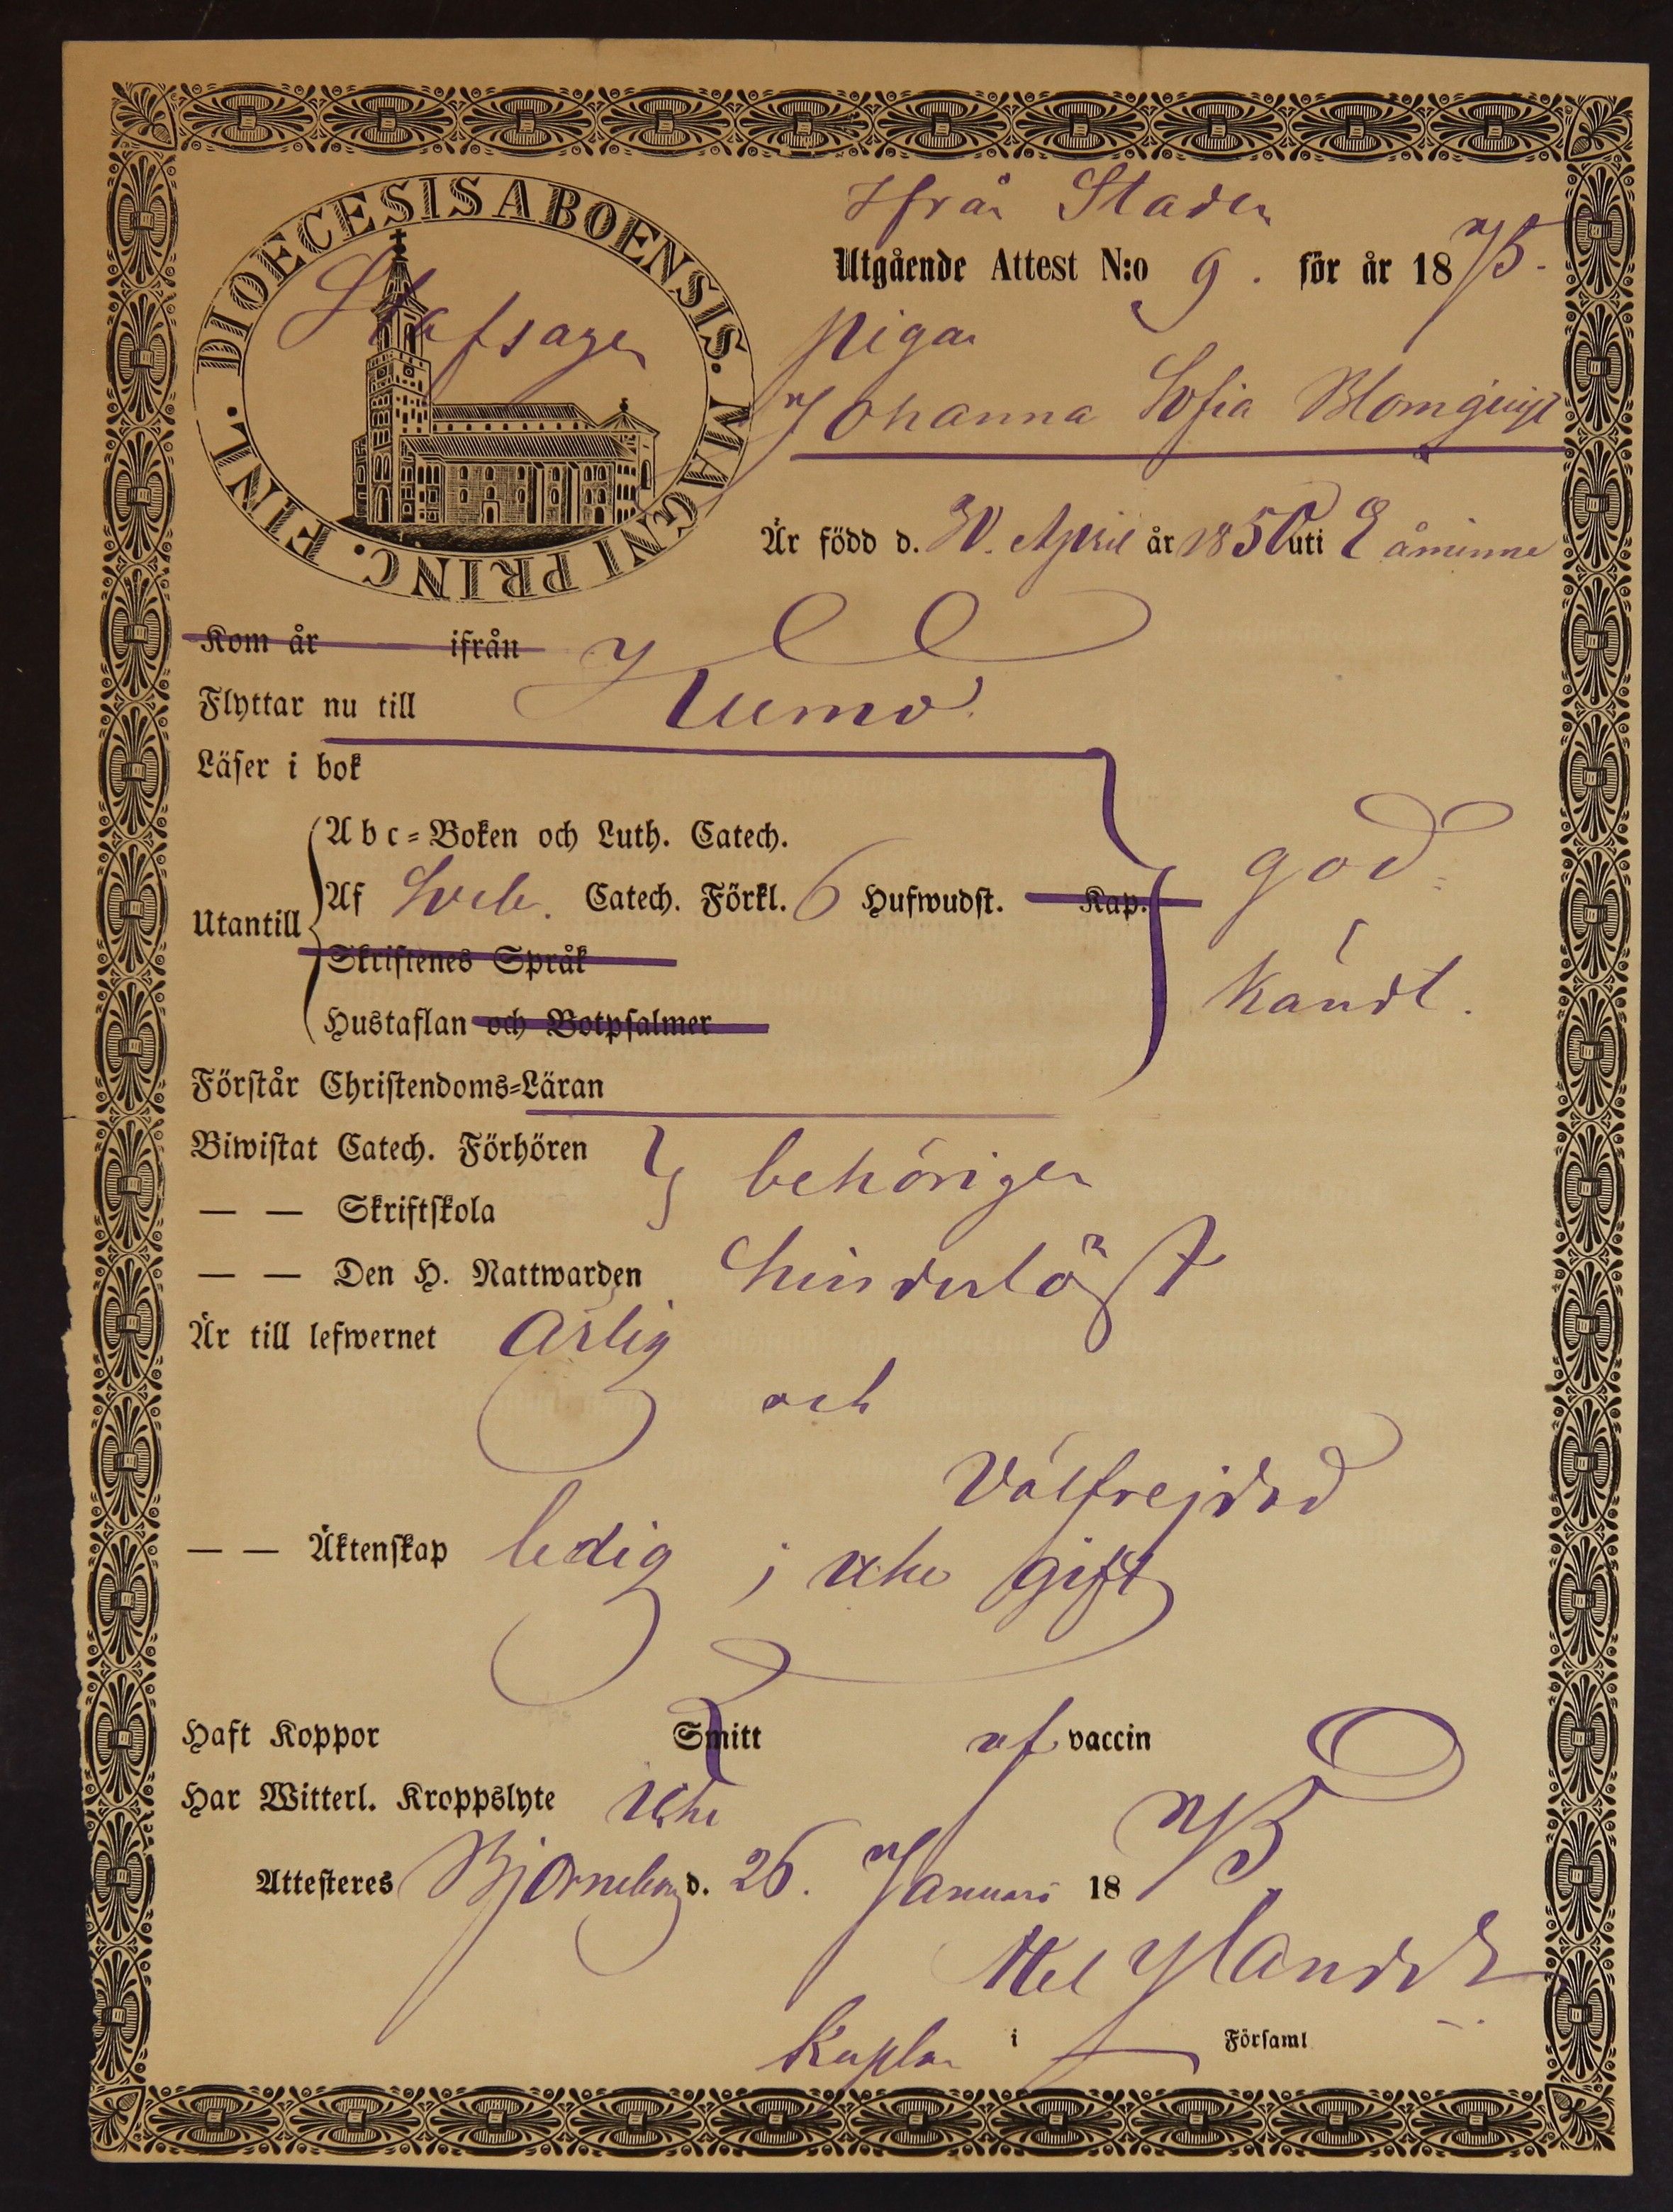 DIOECESIS ABOENSIS. MAGNI PRINC. FINL.
Ifrån Staden
Utgående Attest N:o 9. för år 1875.
pigan
Johanna Sofia Blomqvist
Är född d. 30. April år 1850 uti Eåminne
Kom år ifrån
Flyttar nu till Kumo.
Läser i bok
Abc-Boken och Luth. Catech.
Utantill
Af Sveb. Catech. Förkl. 6 Hufwudst. Kap.
god
Skriftenes Språk
Hustaflan och Botpsalmer
kändt.
Förstår Christendoms-Läran
Biwistat Catech. Förhören
behörigen
— — Skriftskola
— — Den H. Nattwarden hinderlöst
Är till lefwernet ärlig
och
välfrejdad
— — Äktenskap ledig; icke gift
Haft Koppor Smitt af vaccin
Har Witterl. Kroppslyte icke
Attesteres Björneborg d. 26. Januari 1875.
Kaplan i Församl